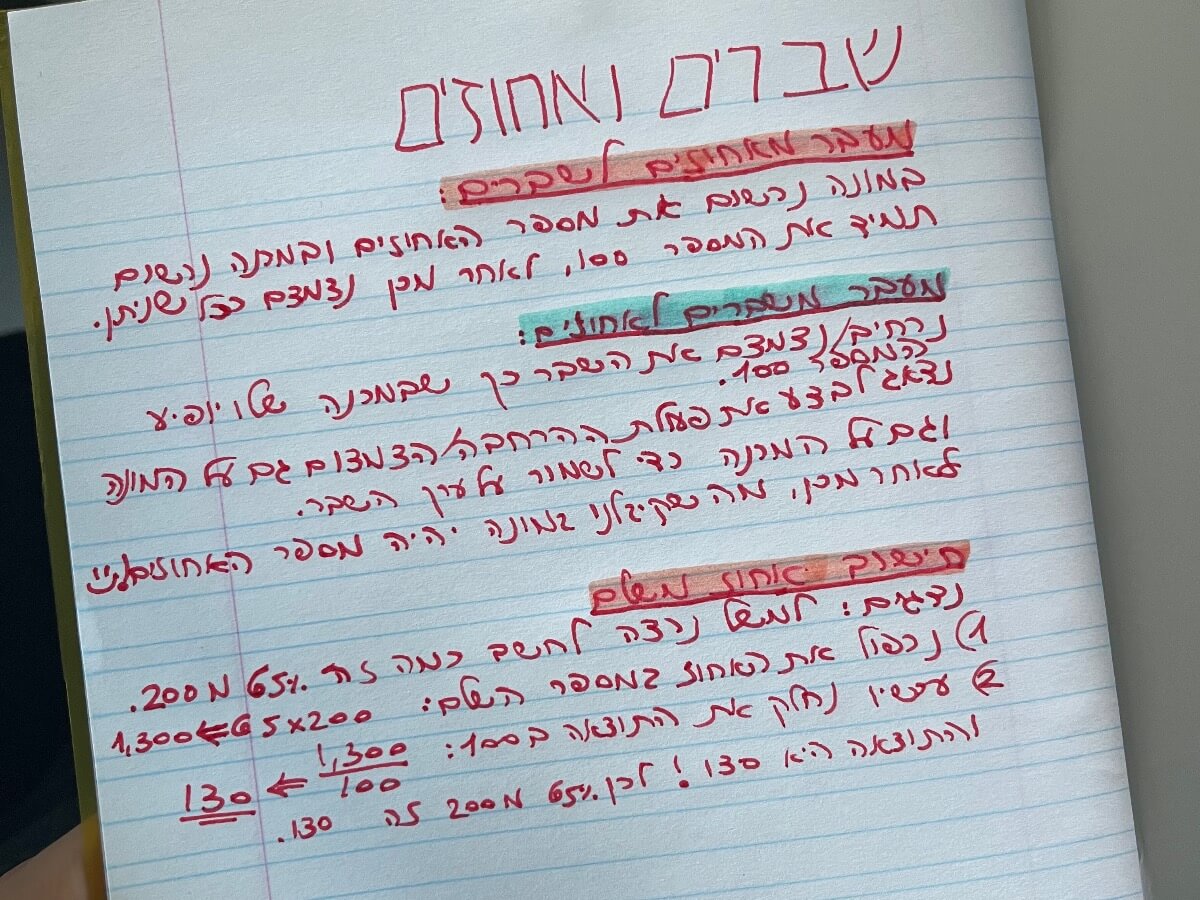 שברים ואחוזים
מעבר מאחוזים לשברים:
במונה נרשום את מספר האחוזים ובמכנה נרשום
תמיד את המספר 100, לאחר מכן נצמצם ככל שניתן.
מעבר משברים לאחוזים:
נרחיב/נצמצם את השבר כך שבמכנה שלו יופיע
המספר 100.
נדאג לבצע את פעולת ההרחבה/הצמצום גם על המונה
וגם על המכנה כדי לשמור על ערך השבר.
לאחר מכן, מה שקיבלנו במונה יהיה מספר האחוזים
חישוב אחוז משלם
נדגים: למשל נרצה לחשב כמה זה 65% מ 200.
1) נכפול את האחוז במספר השלם: 65x200 ⇐ 1,300
2) עכשיו נחלק את התוצאה ב 100: 1,300/100 ← 130
והתוצאה היא 130! לכן 65% מ 200 זה 130.